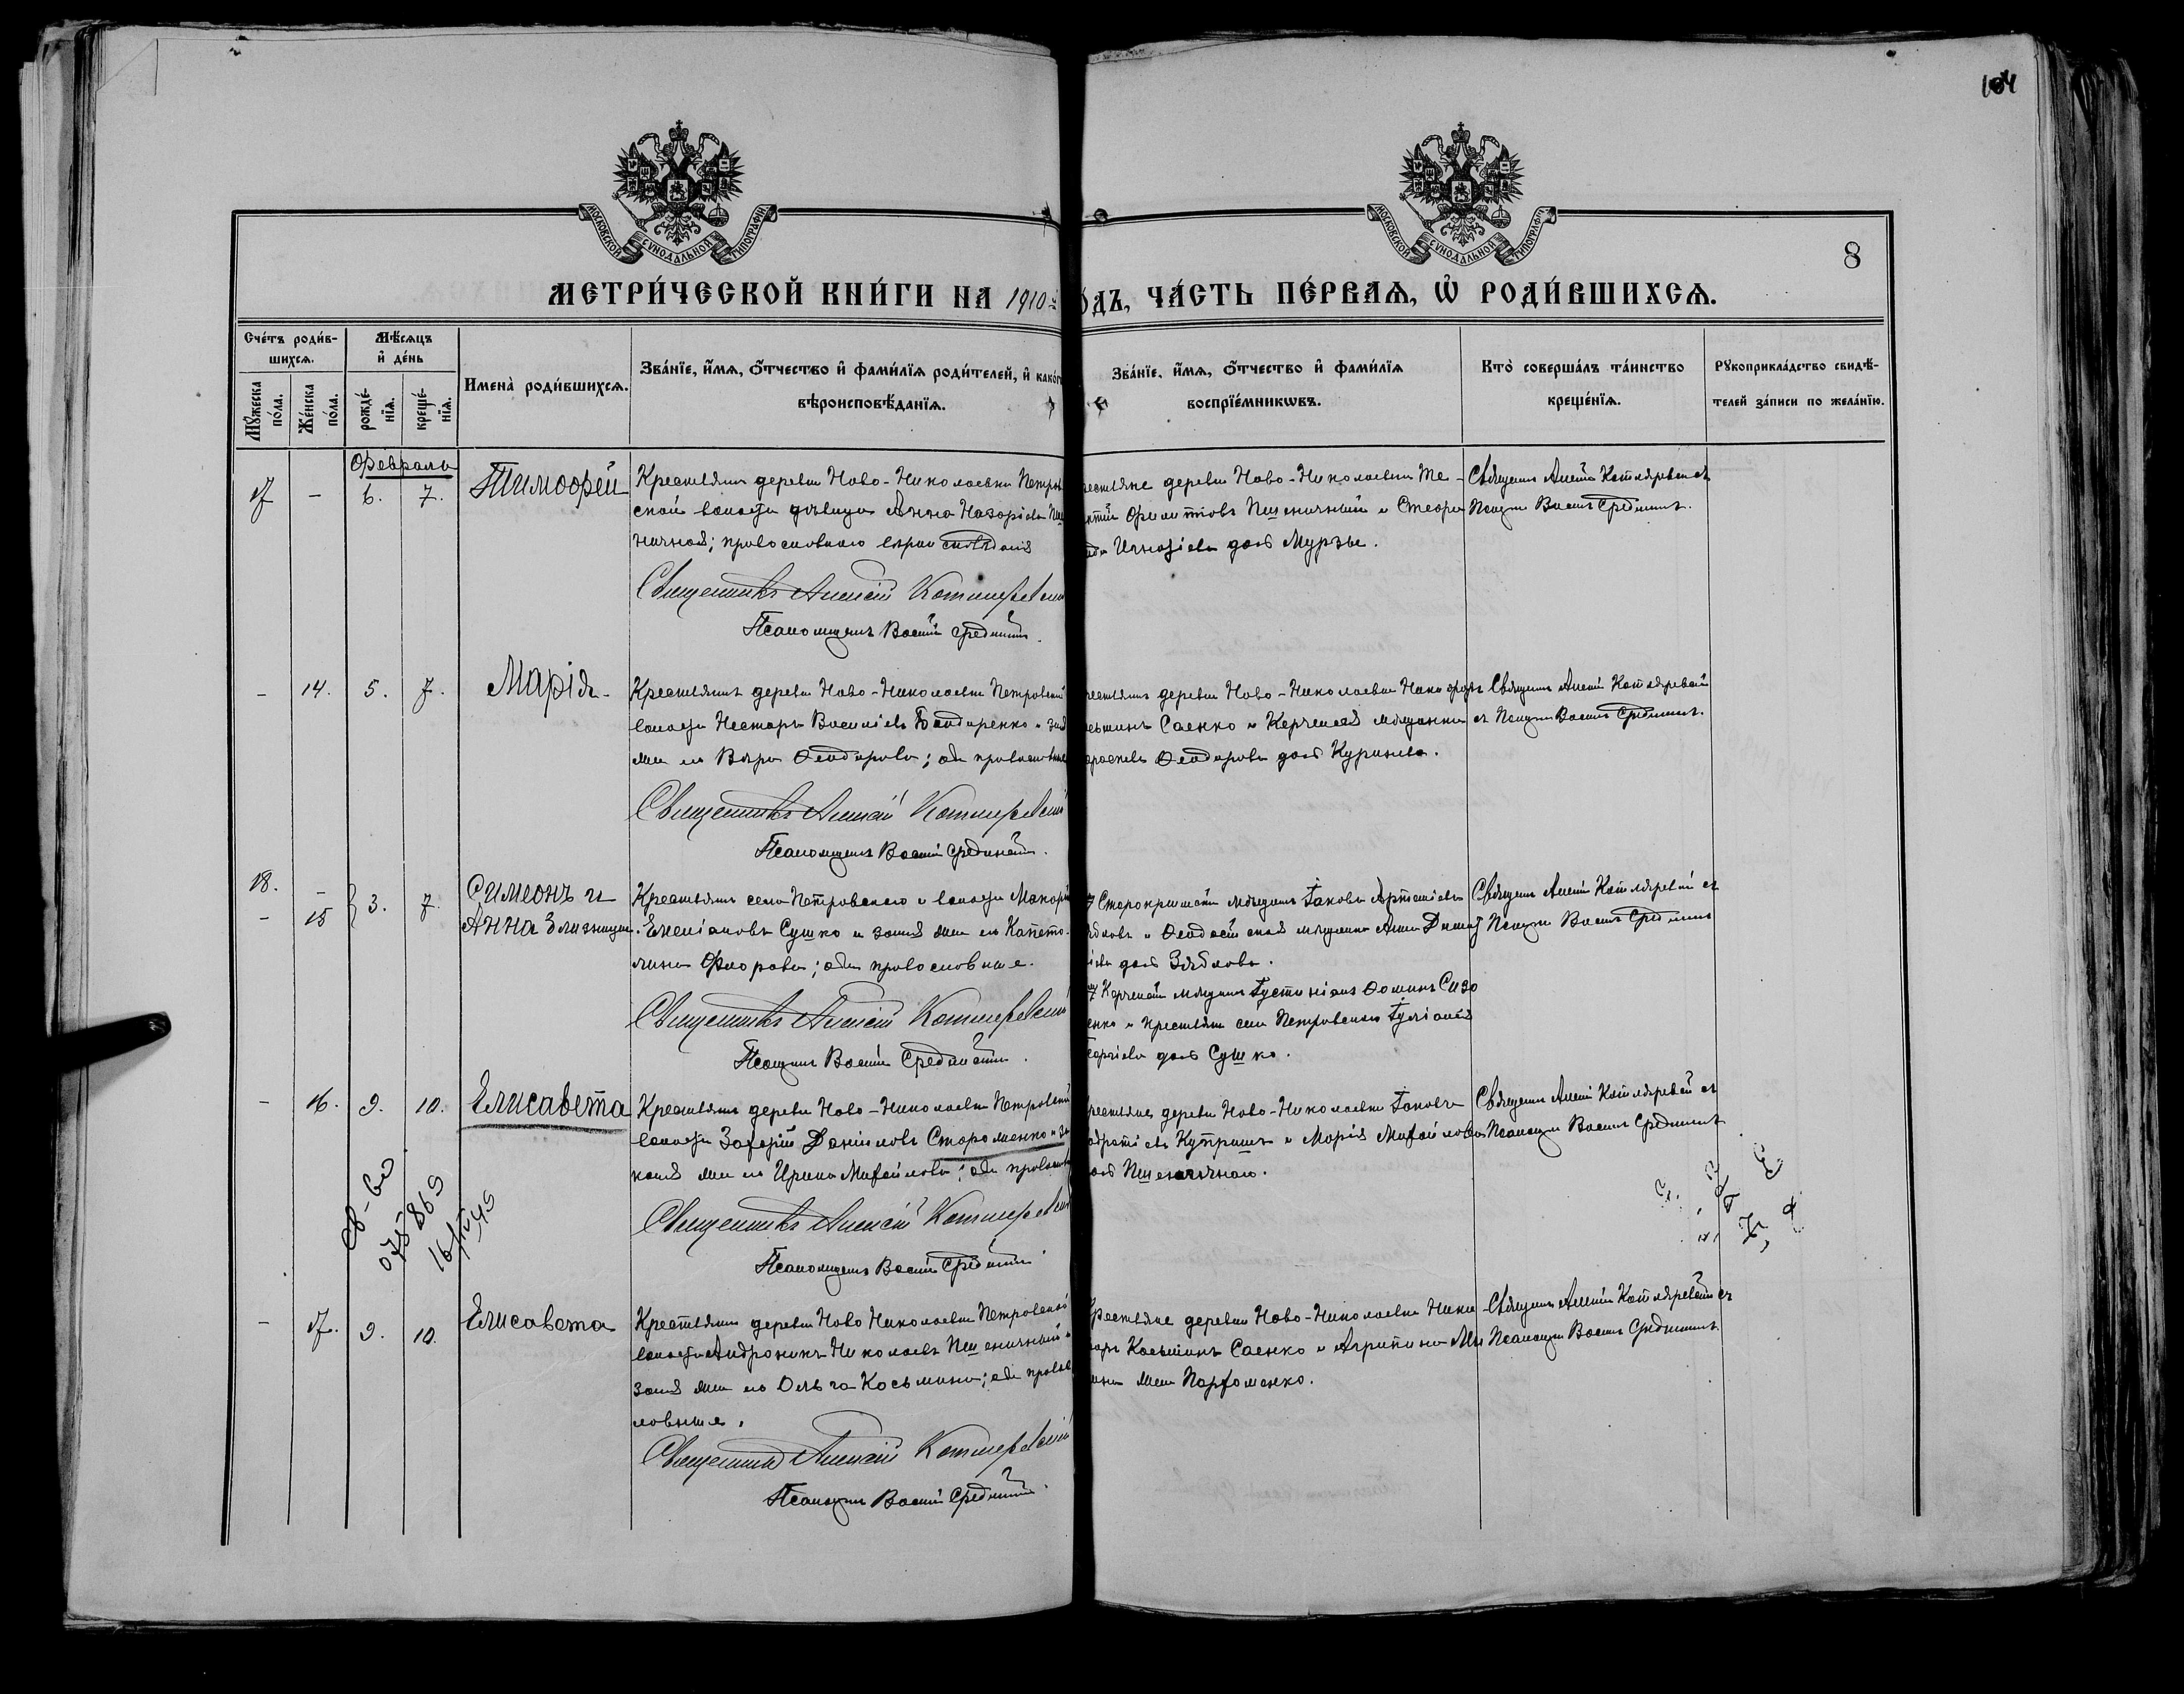 104
МОСКОВСКОЙ СѴНОДАЛЬНОЙ ТИПОГРАФІИ
МОСКОВСКОЙ СѴНОДАЛЬНОЙ ТИПОГРАФІИ
8
МЕТРИ́ЧЕСКОЙ КНИ́ГИ НА 1910-й
ОДЪ, ЧА́СТЬ ПЕ́РВАѦ, Ѽ РОДИ́ВШИХСѦ.
Сче́тъ роди́в-
шихсѧ.
Мꙋ́жеска по́ла.
Же́нска по́ла.
Мѣ́сѧцъ
и҆ де́нь
рожде́-
нїѧ.
креще́-
нїѧ.
Имена̀ роди́вшихсѧ.
Зва́нїе, и҆́мѧ, ѻ҆́тчество и҆ фами́лїѧ роди́телей, и҆ како́г
вѣроисповѣ́данїѧ.
Зва́нїе, и҆́мѧ, ѻ҆́тчество и҆ фами́лїѧ
воспрїе́мникѡвъ.
Кто̀ соверша́лъ та́инство
креще́нїѧ.
Рꙋкоприкла́дство свидѣ́-
телей за́писи по жела́нїю.
Февраль
17 – 6. 7. Тимофей
Крестьянки деревни Ново-Николаевки Петров
ской волости девица Анна Назаріева Пш
ничная; православнаго вѣроисповѣданія
Священникъ Алексій Котляревскій
Псаломщикъ Василій Срединскій.
рестьяне деревни Ново-Николаевки Те-
Филиптовъ Пшеничный и Стефа
Игнатіева дочь Мурзы.
Священ. Алексій Котляревскій съ
Псаломщ. Васил. Срединск.
– 14. 5. 7. Марія
Крестьянинъ деревни Ново-Николаевки Петровской
волости Несторъ Василіевъ Бондаренко и зак
жена его Вѣра Ѳеодорова; оба православные
Священникъ Алексій Котляревскій
Псаломщикъ Василій Срединскій.
рестьянинъ деревни Ново-Николаевки Никифоръ
Саенко и Керченская мѣщанка
Ѳеодорова дочь Куринева.
Священ. Алексій Котляревскій
съ Псаломщ. Васил. Срединск.
18. – 3. 7. Симеонъ и
– 15 Анна близнецы.
Крестьянинъ села Петровскаго и волости Макарій
Емеліановъ Сушко и закон. жена его Капето-
лина Флорова; оба православные.
Священникъ Алексій Котляревскій
Псаломщикъ Василій Срединскій.
Старокрымскій мѣщанинъ Іаковъ Артеміевъ
и Ѳеодосійская мѣщанка Анна
дочь Зяблова.
Керченскій мѣщанинъ Іустиніанъ Ѳоминъ Сизо
енко и крестьян. села Петровскаго Іуліанія
дочь Сушко.
Священ. Алексій Котляревскій съ
Псаломщ. Васил. Срединск.
– 16. 9. 10. Елисавета
Крестьянинъ деревни Ново-Николаевки Петровской
волости Захарій Даніиловъ Староменко и за
ная жена его Ирина Михаилова; оба православ
Священникъ Алексій Котляревскій
Псаломщикъ Василій Срединскій
рестьяне деревни Ново-Николаевки Іаковъ
Купришъ и Марія Михаилова
Пшеничнаго.
Священ. Алексій Котляревскій съ
Псаломщ. Васил. Срединск.
св-во
075869
– 17. 9. 10. Елисавета
Крестьянинъ деревни Ново Николаевки Петровской
волости Андроникъ Николаевъ Пшеничный и
закон. жена его Ольга Косьмина; оба правос
лавные.
Священникъ Алексій Котляревскій
Псаломщикъ Василій Срединскій.
рестьяне деревни Ново-Николаевки Ники
форъ Косьминъ Саенко и Агрипина Ми
Парфоменко.
Священ. Алексій Котляревскій съ
Псаломщ. Васил. Срединск.